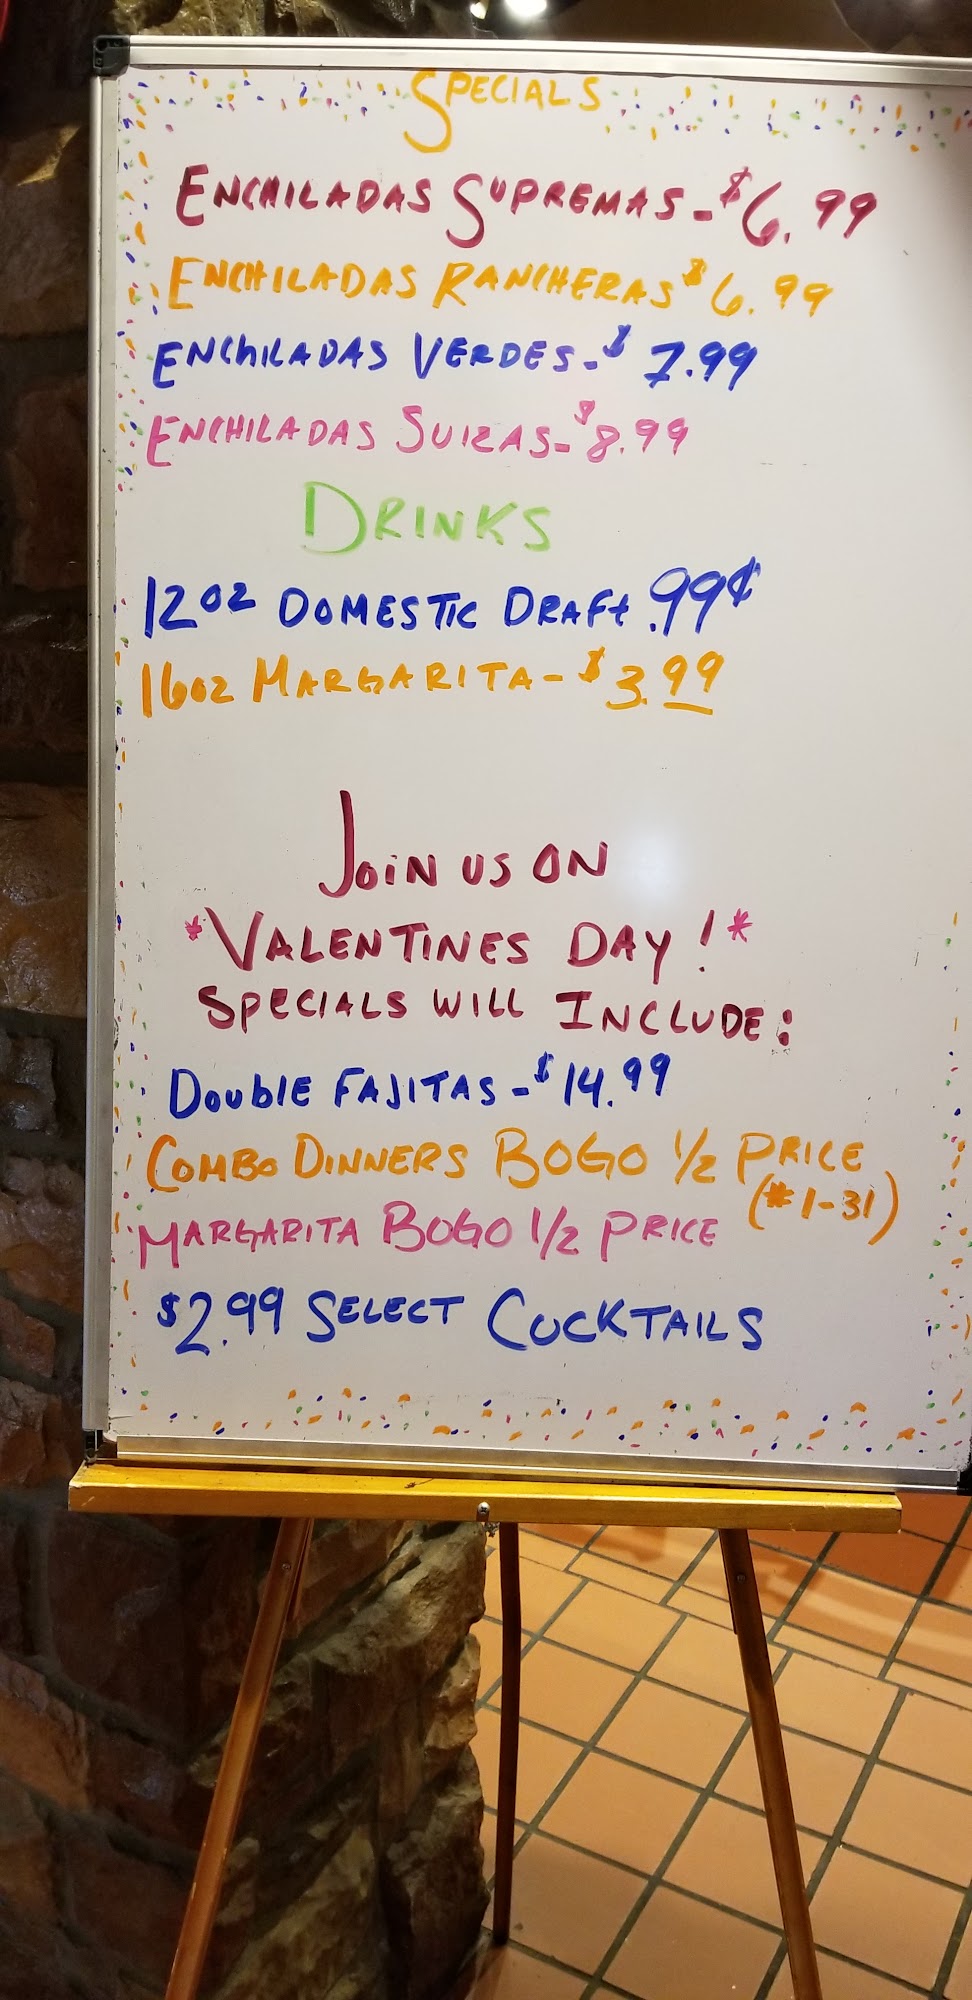 SPECIALS
ENCHILADAS SUPREMAS - $6.99
ENCHILADAS RANCHERAS $6.99
ENCHILADAS VERDES - $7.99
ENCHILADAS SUIZAS - $8.99
DRINKS
12oz DOMESTIC DRAFt .99¢
16oz MARGARITA - $3.99
JOiN US ON
*VALENTINES DAY!*
SPECIALS WILL INCLUDE:
DOUBlE FAJITAS - $14.99
COMBO DINNERS BOGO 1/2 PRICE
(#1-31)
MARGARITA BOGO 1/2 PRICE
$2.99 SELECT COCKTAILS